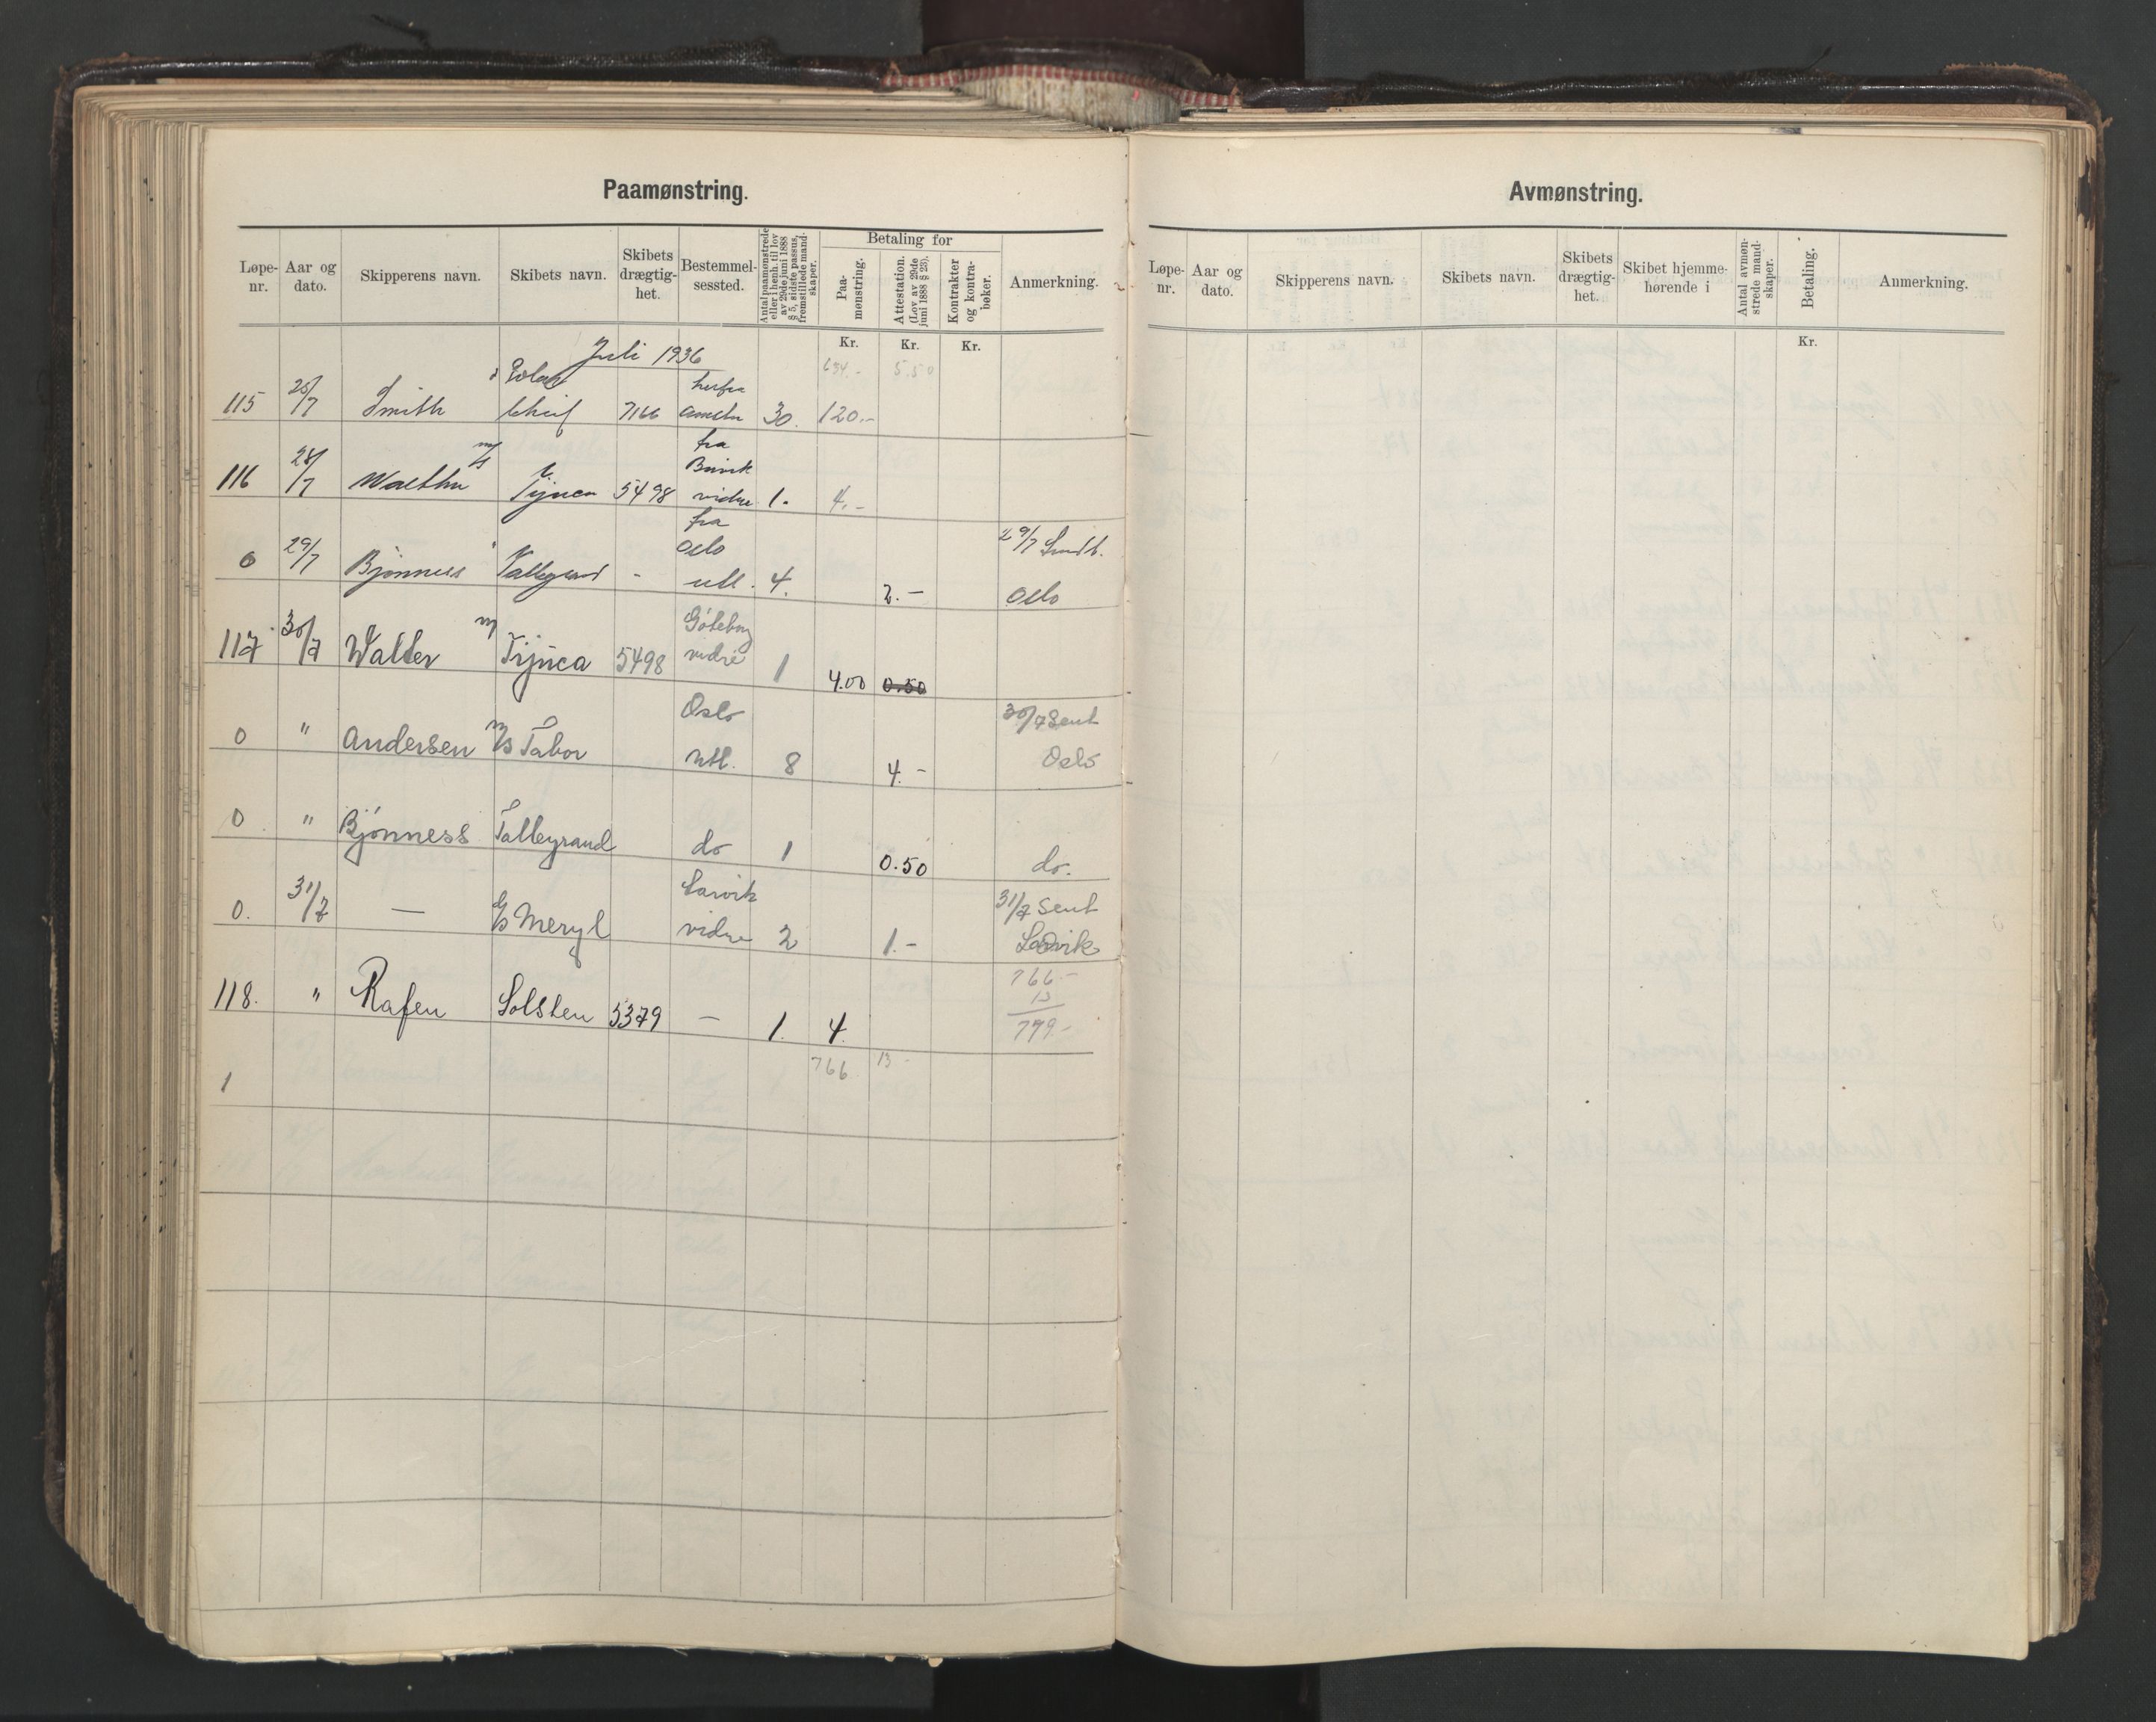 Paamønstring.
Løpe-nr. Aar og dato. Skipperens navn. Skibets navn. Skibets drægtig-het. Bestemmel-sessted. Antal paamønstrede eller i henh. til lov av 29de juni 1888 § 5, sidste passus, fremstillede mand-skaper. Betaling for Paa-mønstring. Attestation. (Lov av 29de juni 1888 § 23). Kontrakter og kontra-bøker. Anmerkning.
Kr. Kr. Kr.
Juli 1936
634.- 5.50
115 25/7 Smith 7166 herfra 30. 120.-
116 28/7 m/s Tijuca 5498 fra vidre 1. 4.-
0 29/7 Bjønness Talleyrand - fra Oslo utl. 4. 2.- 29/7 Sendt. Oslo
117 30/7 Walter m/s Tijuca 5498 Göteborg vidre 1 4.00 0.50
0 " Andersen m/s Tabor Oslo utl. 8 4.- 30/7 Sent Oslo
0 " Bjønness Talleyrand do 1 0.50 do.
0. 31/7 — Meryl Larvik vidre 2 1.- 31/7 Sent Larvik
118. " Rafen Solsten 5379 — 1. 4.
766.-
13
779.-
766 13-
1
Avmønstring.
Løpe-nr. Aar og dato. Skipperens navn. Skibets navn. Skibets drægtig-het. Skibet hjemme-hørende i Antal avmøn-strede mand-skaper. Betaling. Anmerkning.
Kr.